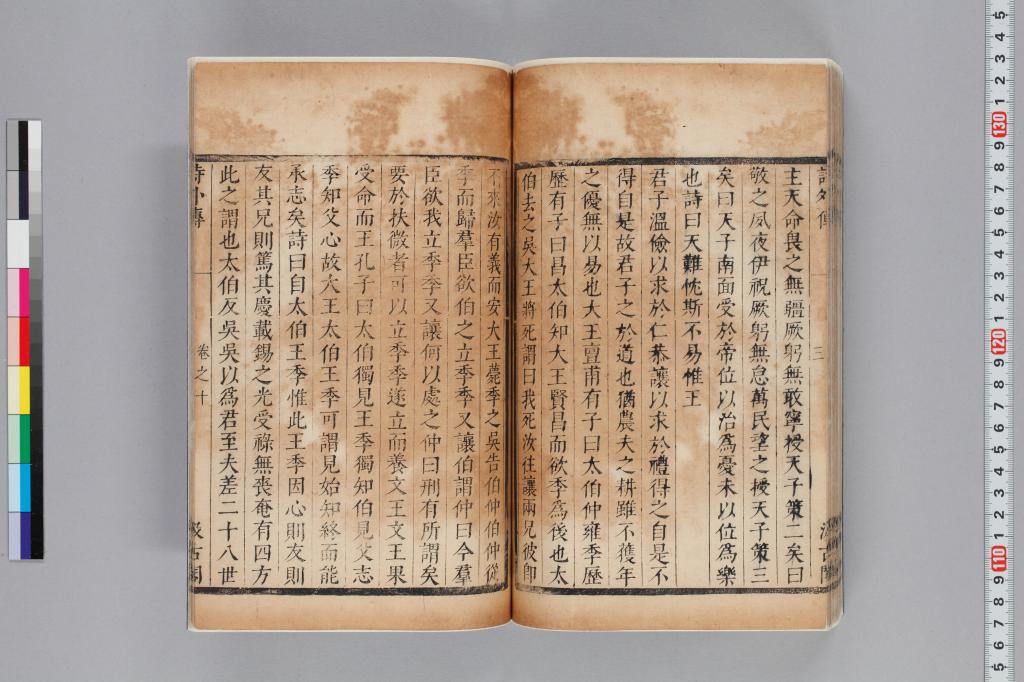 詩外傳
三
汲古閣
主天命畏之無疆厥躬無敢寧授天子策二矣曰
敬之夙夜伊祝厥躬無怠萬民望之授天子策三
矣曰天子南面受於帝位以治為憂未以位為樂
也詩曰天難忱斯不易惟王
君子溫儉以求於仁恭讓以求於禮得之自是不
得自是故君子之於道也猶農夫之耕雖不獲年
之優無以易也大王亶甫有子曰太伯仲雍季歷
歷有子曰昌太伯知大王賢昌而欲季為後也太
伯去之吳大王將死謂曰我死汝往讓兩兄彼即
不來汝有義而安大王薨季之吳告伯仲伯仲從
季而歸羣臣欲伯之立季季又讓伯謂仲曰今羣
臣欲我立季季又讓何以處之仲曰刑有所謂矣
要於扶微者可以立季季遂立而養文王文王果
受命而王孔子曰太伯獨見王季獨知伯見父志
季知父心故大王太伯王季可謂見始知終而能
承志矣詩曰自太伯王季惟此王季因心則友則
友其兄則篤其慶載錫之光受祿無喪奄有四方
此之謂也太伯反吳吳以為君至夫差二十八世
詩外傳
卷之十
汲古閣